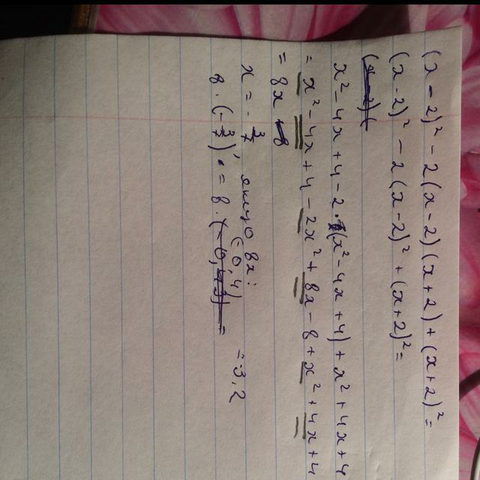 (x-2)² - 2(x-2)(x+2) + (x+2)² =
(x-2)² - 2(x-2)² + (x+2)² =
x² - 4x + 4 - 2·(x² - 4x + 4) + x² + 4x + 4
= x² - 4x + 4 - 2x² + 8x - 8 + x² + 4x + 4
= 8x
x = -3/7, якщо 8x:
8·(-3/7) = 8·(-0,4) = -3,2